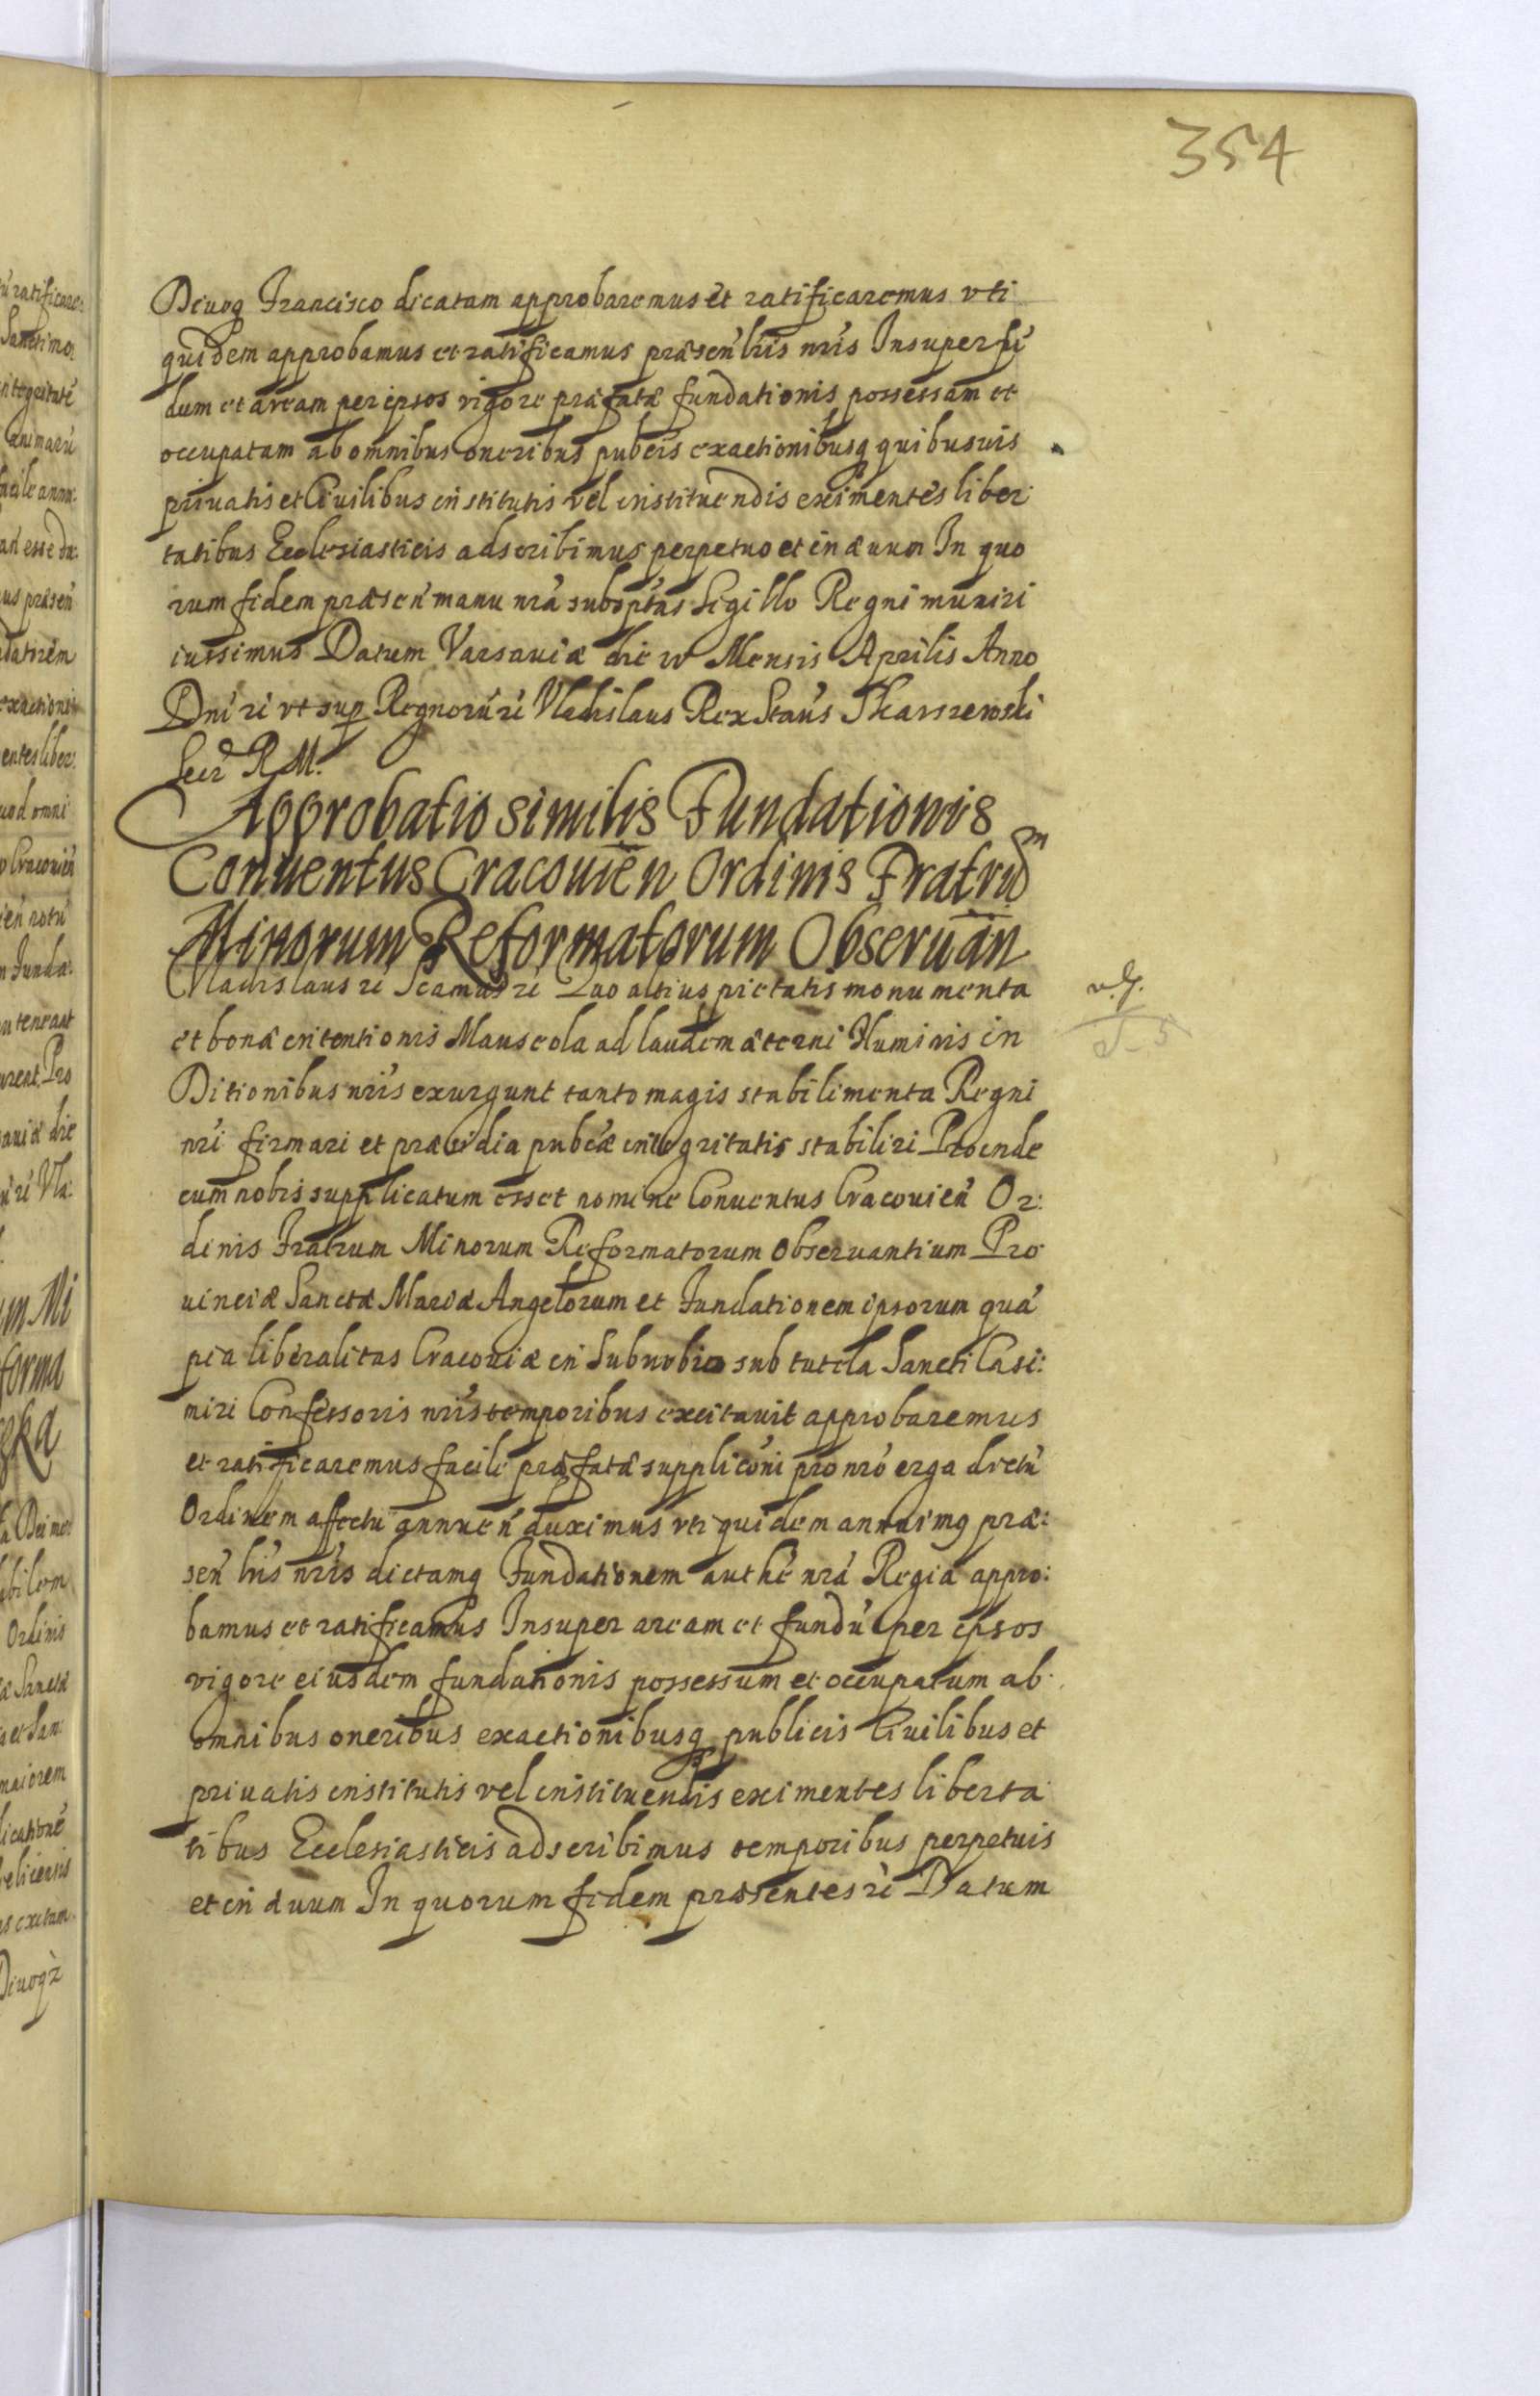 354
Divoq Francisco dicatam approbaremus et ratificaremus vti
quidem approbamus et ratificamus præsen lris nris Insuper fũ
dum et aream per ipsos vigore præfatæ fundationis possessam et
occupatam ab omnibus oneribus pubcis exactionibusq quibusuis
priuatis et Ciuilibus institutis vel instituendis eximentes liber:
tatibus Ecclesiasticis adscribimus perpetuo et in æuum In quo
rum fidem præsen manu nrã subsptas Sigillo Regni muniri
iussimus Datum Varsauiæ die w Mensis Aprilis Anno
Dni zc vt sup Regnorũ zc Vladislaus Rex Staũs Skarszewski
Secr R. M.
Approbatio similis Fundationis
Conuentus Cracouien Ordinis Fratrum
Minorum Reformatorum Obseruan
Vladislaus zc Scamus zc Quo altius pietatis monumenta
et bonæ intentionis Mauseola ad laudem æterni Numinis in
Ditionibus nris exurgunt tanto magis stabilimenta Regni
nri firmari et præsidia pubcæ integritatis stabiliri Proinde
cum nobis supplicatum esset nomine Conuentus Cracouien Or:
dinis Fratrum Minorum Reformatorum Obseruantium Pro
uinciæ Sanctæ Mariæ Angelorum et Fundationem ipsorum quã
pia liberalitas Cracouiæ in Suburbio sub tutela Sancti Casi:
miri Confessoris nris temporibus excitauit approbaremus
et ratificaremus facile præfatæ supplicõni pro nrõ erga dictũ
Ordinem affectu annuen duximus vti quidem annuimq præ:
sen lris nris dictamq Fundationem authẽ nrã Regia appro:
bamus et ratificamus Insuper aream et fundũ per ipsos
vigore eiusdem fundationis possessum et occupatum ab
omnibus oneribus exactionibusq publicis Ciuilibus et
priuatis institutis vel instituendis eximentes liberta
tibus Ecclesiasticis adscribimus temporibus perpetuis
et in æuum In quorum fidem præsentes zc Datum